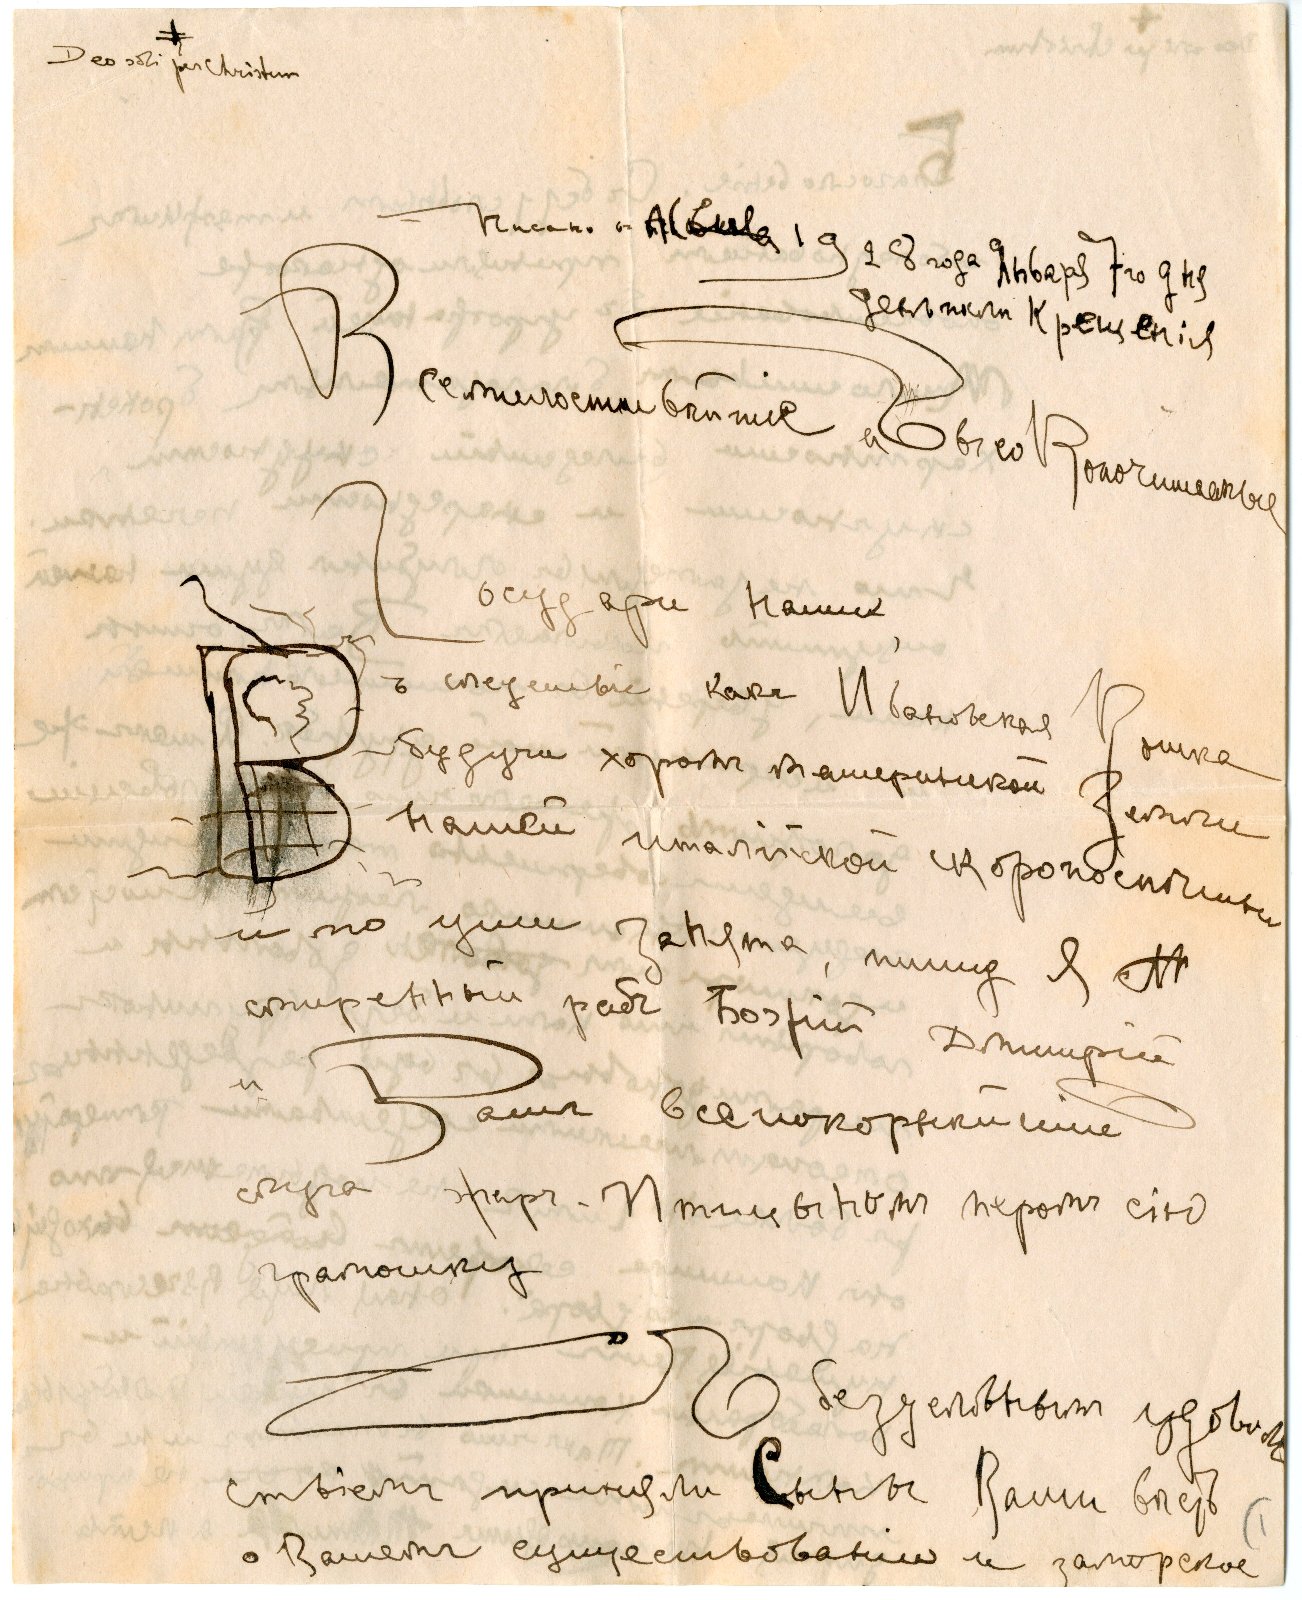 Deo soli per Christum
Писано в 1928 года Января 7го дня
день Крещенія
Всемилостивѣйшіе и Высокопочитаемые
Государи наши,
Въ слѣдствіе какъ Ивановская Кошка
будучи хоромъ материнской Земли
нашей италійской скоропостижни
и по уши занята, пишу Я
смиренный рабъ Божій Димитрій
и Вашъ всепокорнѣйшій
слуга жаръ-Птицынымъ перомъ сію
грамотку
Съ безуемнымъ удоволь
ствіемъ приняли Сыны Ваши вѣсть
о Вашемъ существованіи и заморское